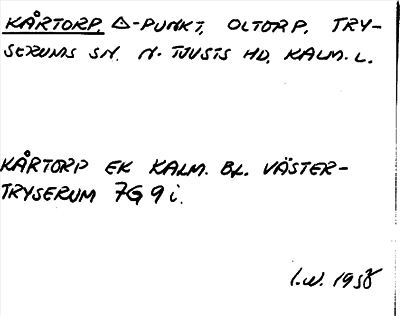 KÅRTORP, △-PUNKT, OLTORP, TRY-
SERUMS SN. N. TJUSTS HD, KALM. L.
KÅRTORP EK KALM. BL. VÄSTER-
TRYSERUM 7G 9 i.
I.W. 1958